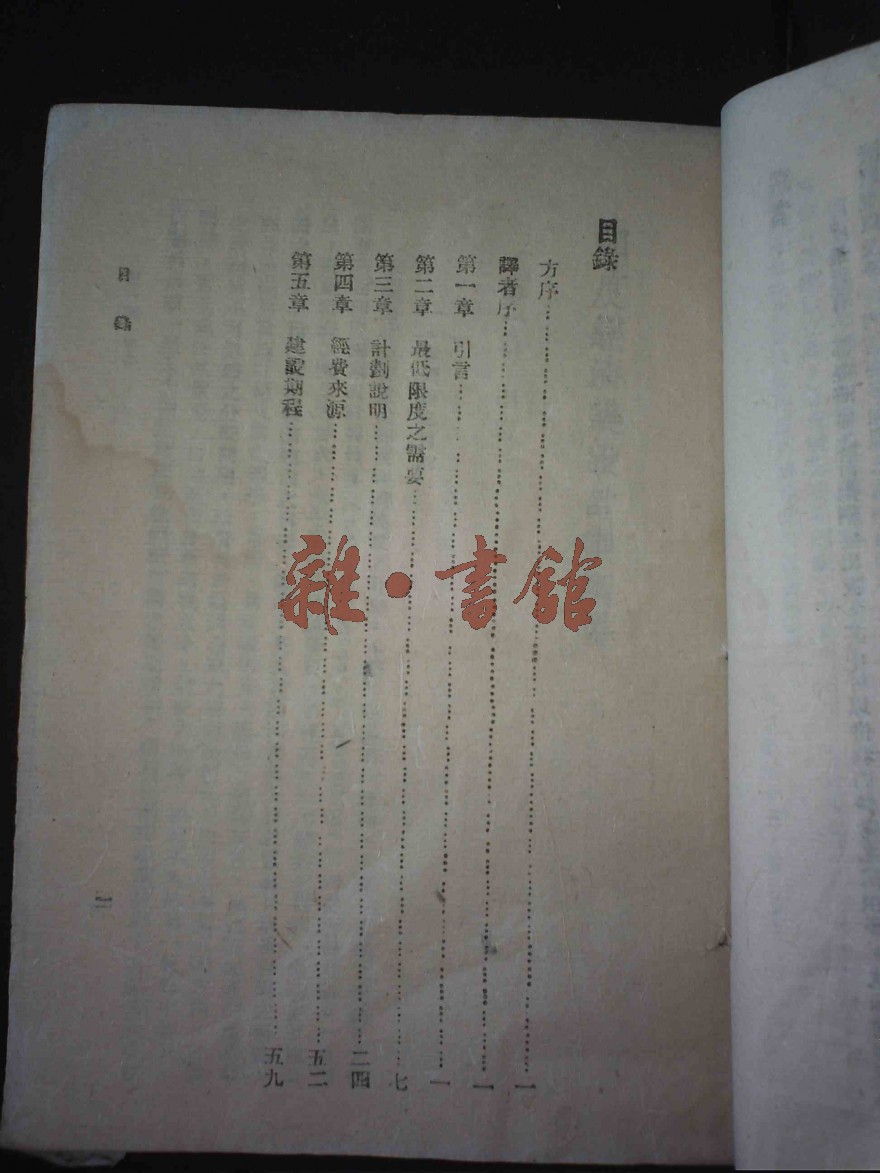 目錄
方序……一
譯者序……一
第一章 引言……一
第二章 最低限度之需要……七
第三章 計劃說明……二四
第四章 經費來源……五二
第五章 建設期程……五九
目錄
一
雜·書館